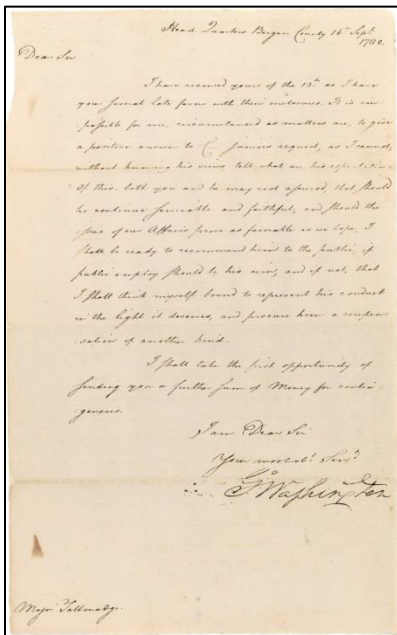 Head Quarters Bergen County 16th Septr
1780.
Dear Sir
I have received yours of the 13th as I have
your several late favors with their inclosures. It is im-
possible for me, circumstanced as matters are, to give
a positive answer to C— Juniors request, as I cannot,
without knowing his views, tell what are his expectations.
Of this, both you and he may rest assured, that should
he continue serviceable and faithful, and should the
issue of our Affairs prove as favorable as we hope, I
shall be ready to recommend him to the public, if
public employ should be his aim, and if not, that
I shall think myself bound to represent his conduct
in the light it deserves, and procure him a compen-
sation of another kind.
I shall take the first opportunity of
sending you a further sum of Money for contin-
gencies.
I am Dear Sir
Your most obt Servt
Go Washington
Major Tallmadge.